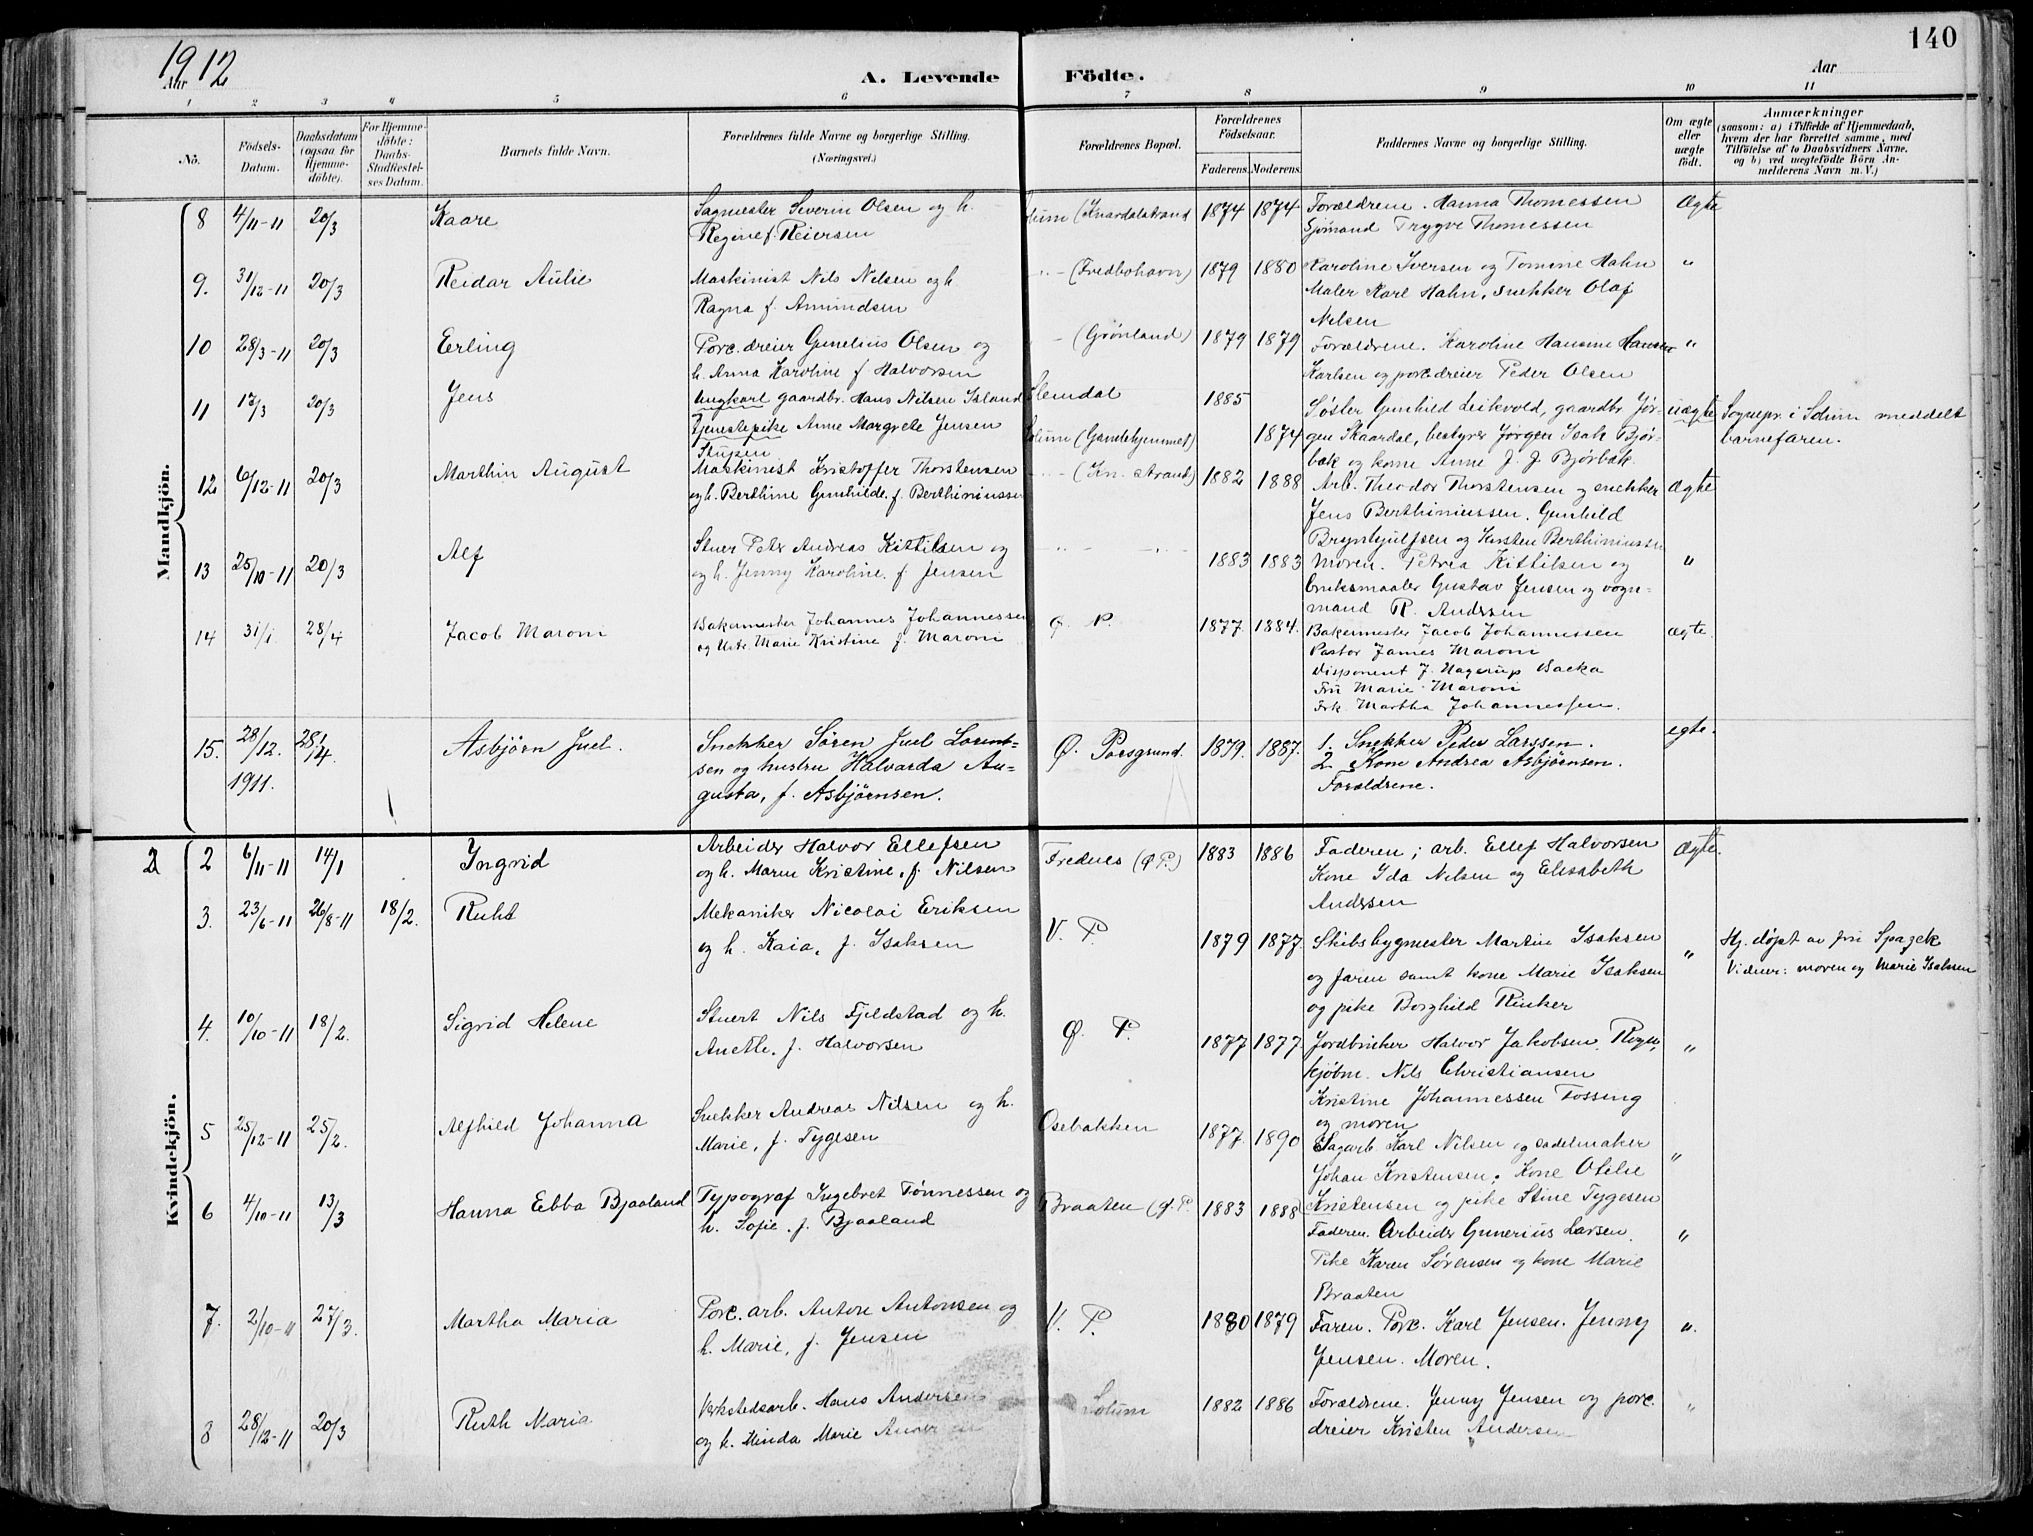 1912
Aar
A. Levende Födte.
Aar
140
1 2 3 4 5 6 7 8 9 10 11
No.
Födsels-Datum.
Daabsdatum (ogsaa for Hjemme-döbte).
For Hjemme-döbte: Daabs-Stadfæstel-ses Datum.
Barnets fulde Navn.
Forældrenes fulde Navne og borgerlige Stilling. (Næringsvei.)
Forældrenes Bopæl.
Forældrenes Födselsaar.
Faderens. Moderens.
Faddernes Navne og borgerlige Stilling.
Om ægte eller uægte födt.
Anmærkninger
(saasom: a) i Tilfælde af Hjemmedaab,
hvem der har forrettet samme, med
Tilföielse af to Daabsvidners Navne,
og b) ved uægtefödte Börn An-
melderens Navn m. V.)
Mandkjön.
8 4/11-11 20/3 Kaare Sagmester Severin Olsen og h. Solum (Knardalstrand 1874 1874 Forældrene. Hanna Thomessen Ægte
Regine f. Reiersen Sjømand Trygve Thomessen
9. 31/12-11 20/3 Reidar Aulie Maskinist Nils Nilsen og h. -"- (Fredbohavn) 1879 1880 Karoline Iversen og Tomine Hahn "
Ragna f. Amundsen Maler Karl Hahn, snekker Olaf
Nilsen
10 28/3-11 20/3 Erling Porc. dreier Gunelius Olsen og - (Grønland) 1879 1879 Forældrene. Karoline Hansine Hansen "
h. Anna Karoline f Halvorsen Karlsen og porc. dreier Peder Olsen
11 17/3 20/3 Jens Ungkarl gaardbr. Hans Nilsen Island Slemdal 1885 Søster Gunhild Leikvold, gaardbr. Jør- uægte Sognepr. i Solum meddelt
Tjenestepike Anne Margrete Jensen Solum (Gamlehjemmet) 1874 gen Skaardal, bestyrer Jørgen Isak Bjør- barnefaren.
Stupen bæk og kone Anne J. J. Bjørbæk.
12 6/12-11 20/3 Marthin August Maskinist Kristoffer Thorstensen -"- (Kn. strand) 1882 1888 Arb. Theodor Thorstensen og snekker Ægte
og h. Berthine Gunhilde, f. Berthiniussen Jens Berthiniussen. Gunhild
Brynhjulfsen og Kirsten Berthiniussen
13 25/10-11 20/3 Alf Stuer Peter Andreas Kittilsen og -"- -"- 1883 1883 Moren. Petrea Kittilsen og "
og h. Jenny Karoline, f. Jensen Bruksmaaler Gustav Jensen og vogn-
mand R. Andersen
14 31/1. 28/4 Jacob Maroni Bakermester Johannes Johannessen Ø. P. 1877. 1884. Bakermester Jacob Johannessen ægte.
og Hstr. Marie Kristine f. Maroni Pastor James Maroni
Disponent J. Hagerup Backa
Fru Marie Maroni
Frk. Martha Johannessen.
15. 28/12. 1911. 28/4. Asbjørn Juel. Snekker Søren Juel Lorent- Ø. Porsgrund. 1879. 1887. 1. Snekker Peder Larssen. egte.
sen og hustru Halvarda Au- 2 Kone Andrea Asbjørnsen.
gusta, f. Asbjørnsen. Forældrene.
Kvindekjön.
2 2 6/11-11 14/1 Ingrid Arbeider Halvor Ellefsen Frednes (Ø P.) 1883 1886 Faderen; arb. Ellef Halvorsen Ægte.
og h. Maren Kristine, f. Nilsen Kone Ida Nilsen og Elisabeth
Andersen
3. 23/6-11 26/8-11 18/2. Ruht Mekaniker Nicolai Eriksen V. P. 1879 1877. Skibsbygmester Martin Isaksen " Hj. døpt av fru Spagek
og h. Kaia, f. Isaksen og faren samt kone Marie Isaksen Vidner: moren og Marie Isaksen
og pike Borghild Rinker
4. 10/10-11 18/2. Sigrid Helene Stuert Nils Fjeldstad og h. Ø. P. 1877 1877 Jordbruker Halvor Jakobsen, "
Anette, f. Halvorsen kjøbm. Nils Christiansen
Kristine Johannessen Fossing
og moren
5 25/12-11 25/2. Alfhild Johanna Snekker Andreas Nilsen og h. Osebakken 1877. 1890 Sagarb Karl Nilsen og sadelmaker "
Marie, f. Tygesen Johan Kristensen; Kone Otelie
Kristensen og pike Stine Tygesen
6 4/10-11 13/3 Hanna Ebba Bjaaland Typograf Ingebret Tønnessen og Braaten (Ø.P. 1883 1888 Faderen. Arbeider Gunerius Larsen. "
h. Sofie, f. Bjaaland Pike Karen Sørensen og kone Marie
Braaten
7. 2/10-11 27/3. Martha Maria Porc. arb. Anton Antonsen og V. P. 1880 1879 Faren. Porc. Karl Jensen. Jenny "
h. Marie, f. Jensen Jensen. Moren.
8 28/12-11 20/3 Ruth Maria Verkstedsarb. Hans Andersen Solum 1882 1886 Forældrene. Jenny Jensen og porc. "
og h. Minda Marie dreier Kristen Andersen